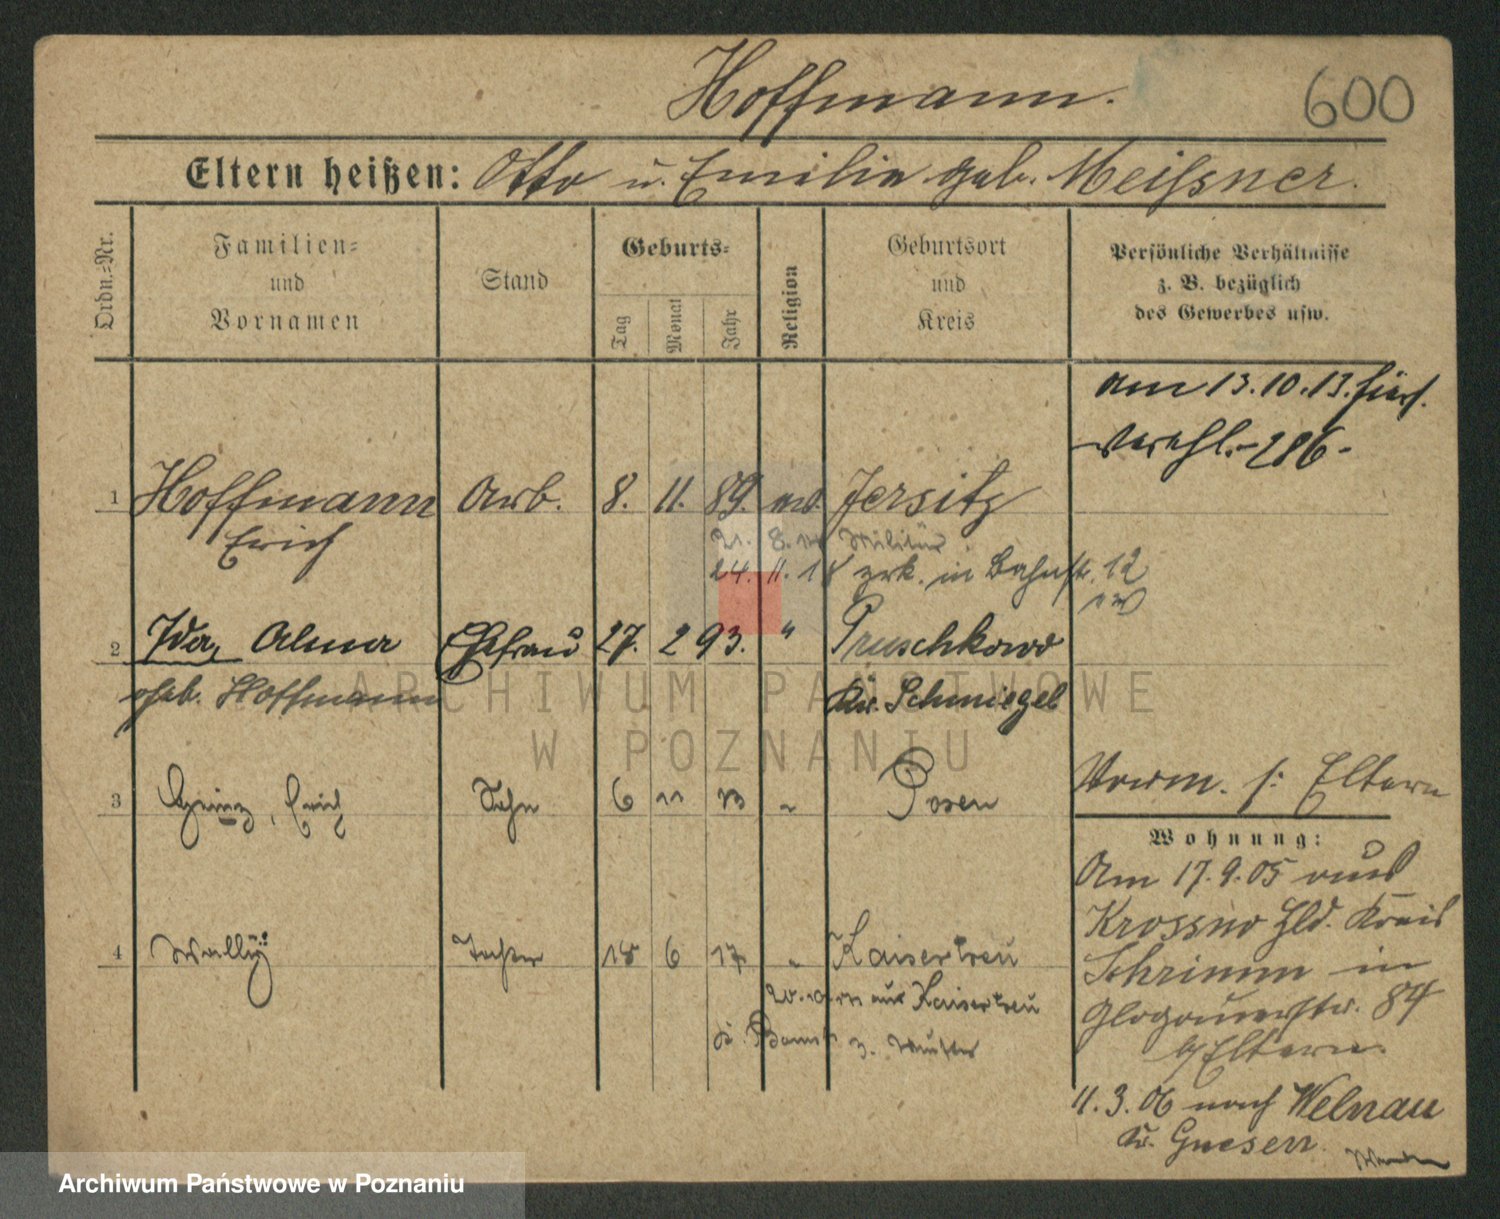 Hoffmann.
600
Eltern heißen: Otto u. Emilie geb. Meißner.
Ordn.=Nr.
Familien=
und
Vornamen
Stand
Geburts=
Tag
Monat
Jahr
Religion
Geburtsort
und
Kreis
Persönliche Verhältnisse
z. B. bezüglich
des Gewerbes usw.
am 13.10.13. hier
verehl. 286-
1 Hoffmann Arb. 8. 11. 89. Jersitz
Erich
21. 8. Militär
24. 11. 18 zrk. in Bahnstr. 12
2 Ida, Alma Ehefrau 27. 2 93. " Pruschkowo
geb. Hoffmann Kr. Schmiegel
3 Heinz, Erich Sohn 6 11 13 " Posen
Vorm. s: Eltern
Wohnung:
Am 17.9.05 aus
Krossno Hld. Kreis
Schrimm in
Glogauerstr. 84
b/Eltern.
4 Wally Tochter 18 6 17 " Kaisertreu
aus Kaisertreu
z. Mutter
11.3.06 nach Welnau
Kr. Gnesen
ARCHIWUM PAŃSTWOWE
W POZNANIU
Archiwum Państwowe w Poznaniu